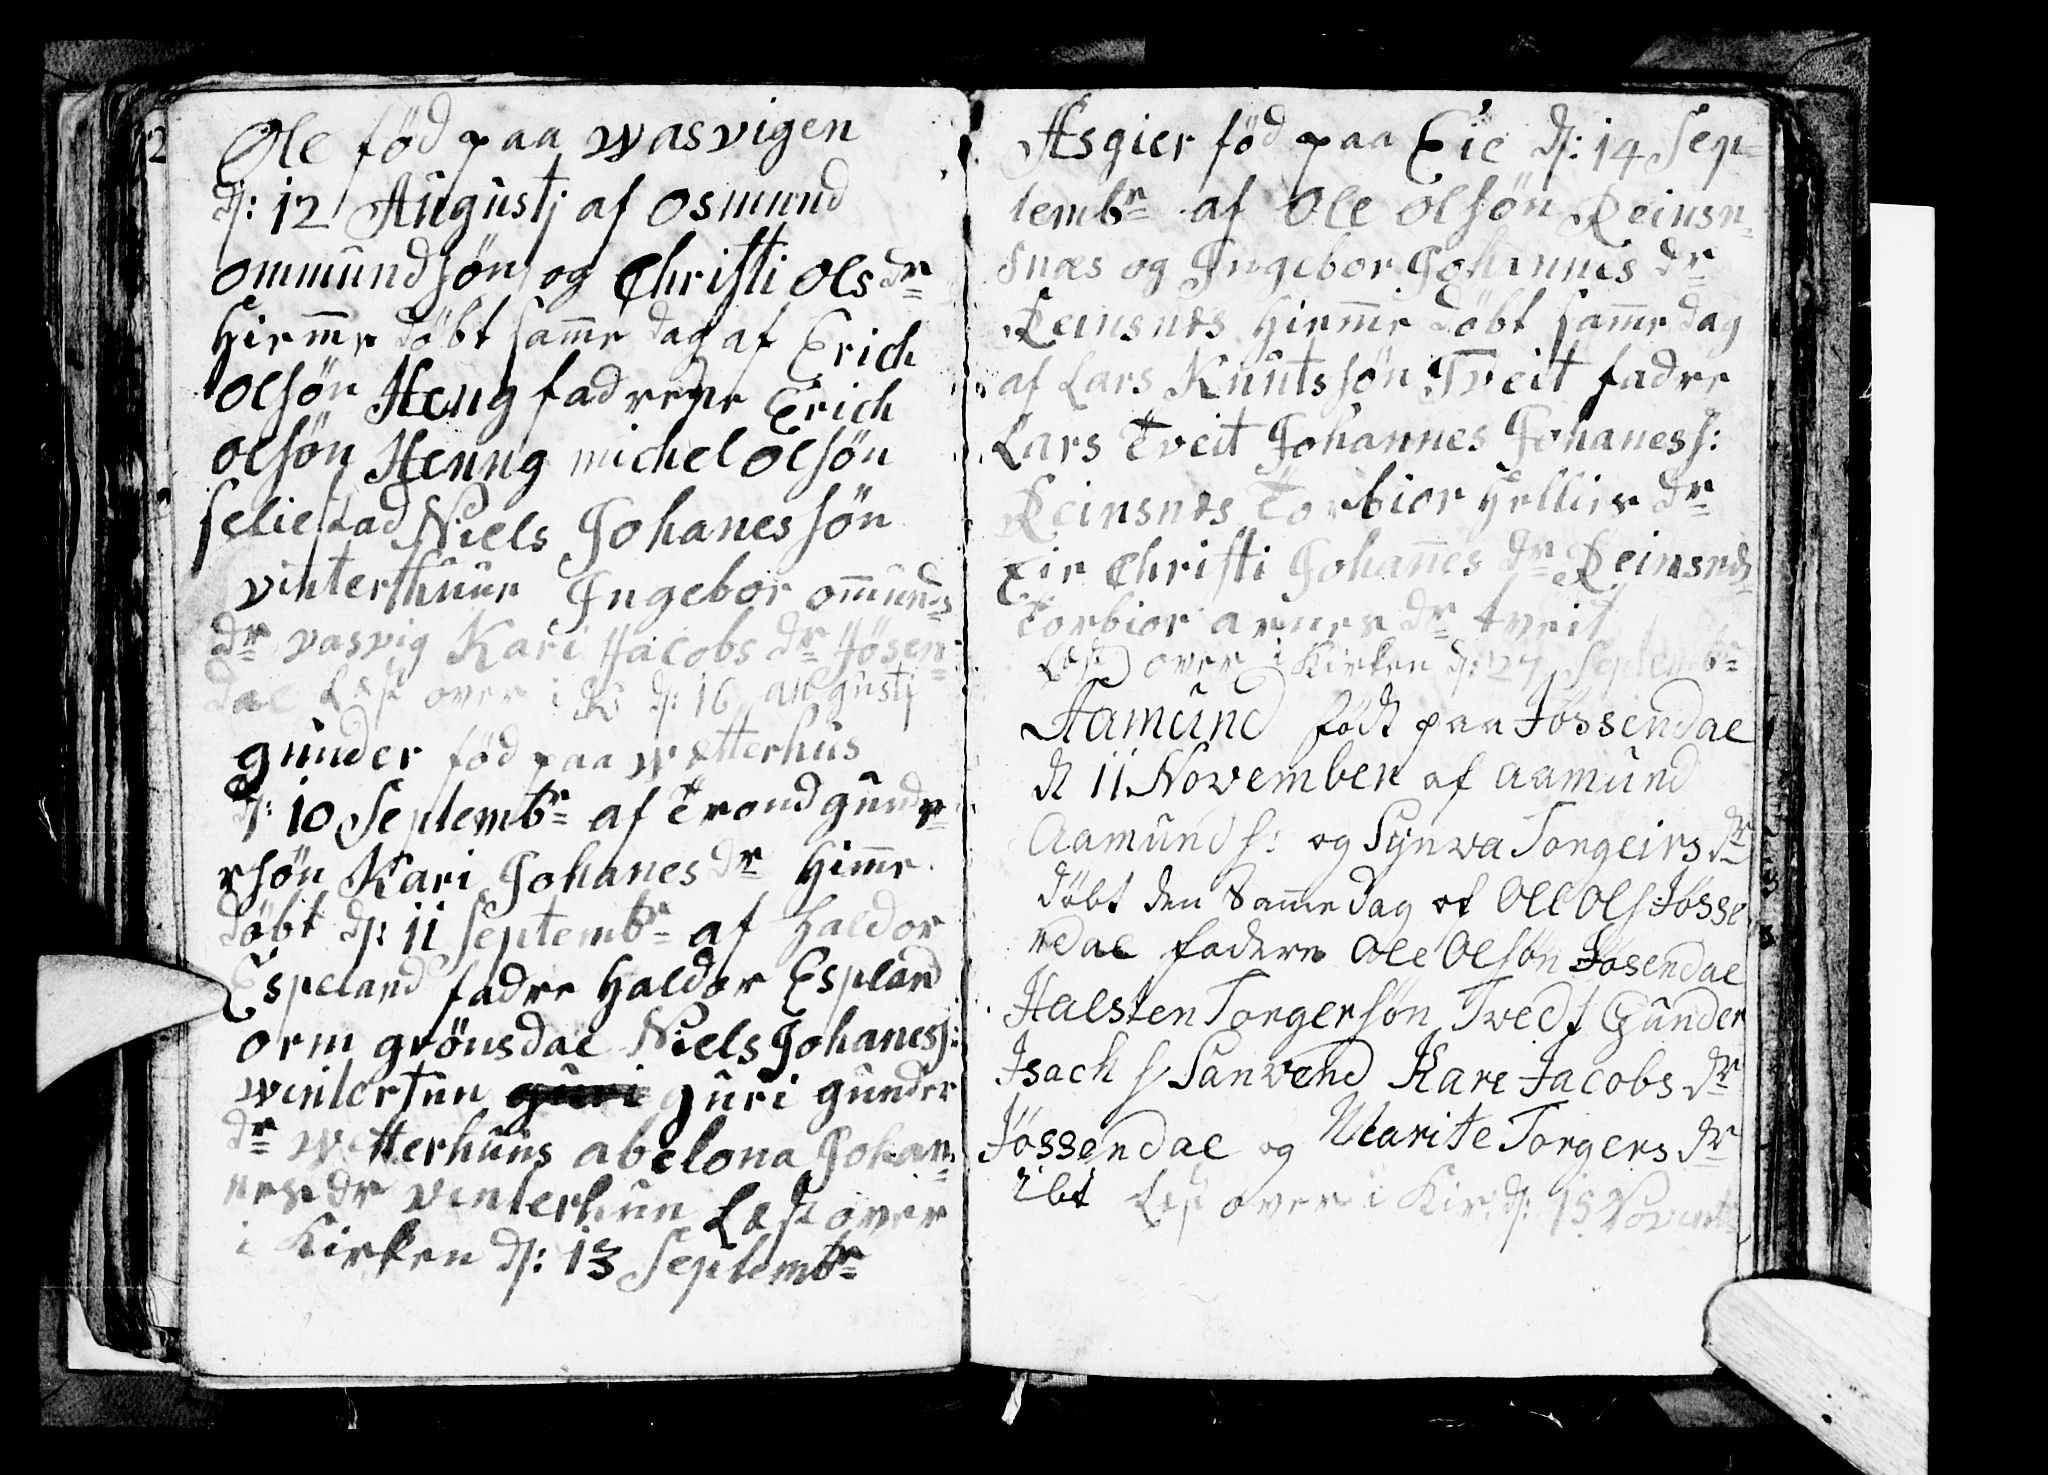 2
Ole föd paa wasvigen
d: 12 Augustj af Osmund
ommundsön og Christi ols dr
hiemme döbt samme dag af Erich
olsön Heng fadrene Erich
olsön Henng michel olsön
seliestad Niels Johanessön
vinterthuun Ingebor ommunds
dr vasvig Kari Jacobs dr Jösen
dal Læst over i K d: 16 augustj
gunder föd paa wetterhus
d: 10 Septembr af Trond gunde
rsön Kari Johanes dr himme
döbt d: 11 Septembr af haldor
Espeland fadre haldor Espland
orm grönsdal Niels Johaness:
winterton guri gunder
dr wetterhuus abelona Johan
nes dr vinterhun Læst over
i Kirken d: 13 Septembr
Asgier föd paa Eie d: 14 Sep
tembr af Ole olsön Reinsn
snæs og Ingebor Johannis dr
Reinsnes hiemme döbt samme dag
af Lars Knutssön Tveit fadre
Lars Tveit Johannes Johaness:
Reinsnes Torbior Hellies dr
Eie Christi Johannes dr Reinsnes
Torbior arnes dr tveit
Læst over i Kirken d: 27 Septembr
Aamund födt paa Jössendal
d 11 November af Aamund
Aamunds: og Synva Torgeirs dr
döbt den Samme dag af Ole Ols: Jösse
ndal fadere Ole Olsön Jösendal
Halsten Torgersön Tvedt Gunder
Isach s Sanvend Kare Jacobs dr
Jössendal og Marite Torgers dr
ibt Læst over i Kir: d: 15 Novemb